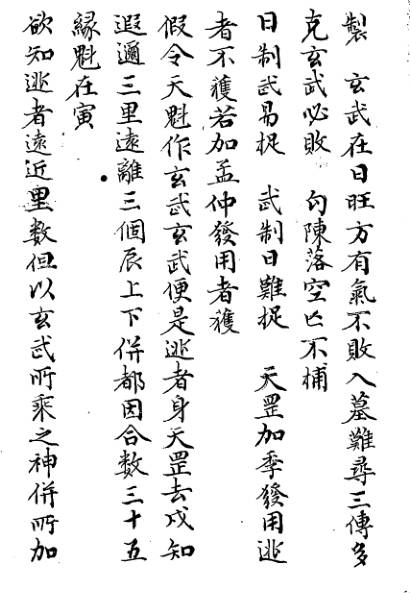 製　玄武在日旺方有氣不敗入墓難尋三傳多
克玄武必敗　勾陳落空亡不捕
日制武易捉　武制日難捉　天罡加季發用逃
者不獲若加孟仲發用者獲
假令天魁作玄武玄武便是逃者身天罡去戌知
遐邇三里遠離三個辰上下併都因合數三十五
緣魁在寅
欲知逃者遠近里數但以玄武所乘之神併所加